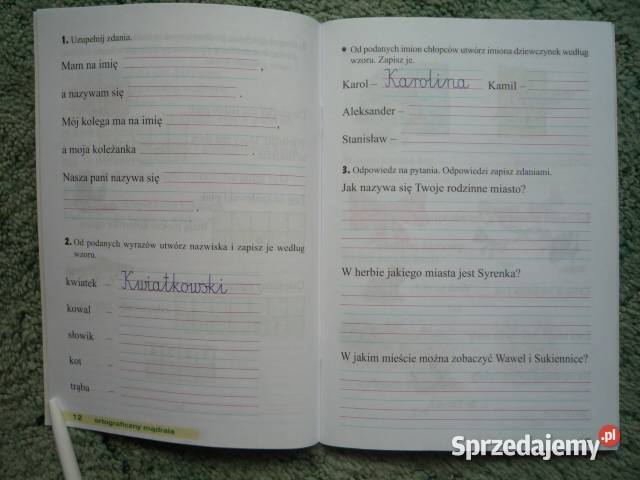 1. Uzupełnij zdania.
Mam na imię ,
a nazywam się .
Mój kolega ma na imię ,
a moja koleżanka .
Nasza pani nazywa się
.
2. Od podanych wyrazów utwórz nazwiska i zapisz je według
wzoru.
kwiatek – Kwiatkowski
kowal –
słowik –
kot –
trąba –
12 ortograficzny mądrala
* Od podanych imion chłopców utwórz imiona dziewczynek według
wzoru. Zapisz je.
Karol – Karolina Kamil –
Aleksander –
Stanisław –
3. Odpowiedz na pytania. Odpowiedzi zapisz zdaniami.
Jak nazywa się Twoje rodzinne miasto?
W herbie jakiego miasta jest Syrenka?
W jakim mieście można zobaczyć Wawel i Sukiennice?
Sprzedajemy.pl